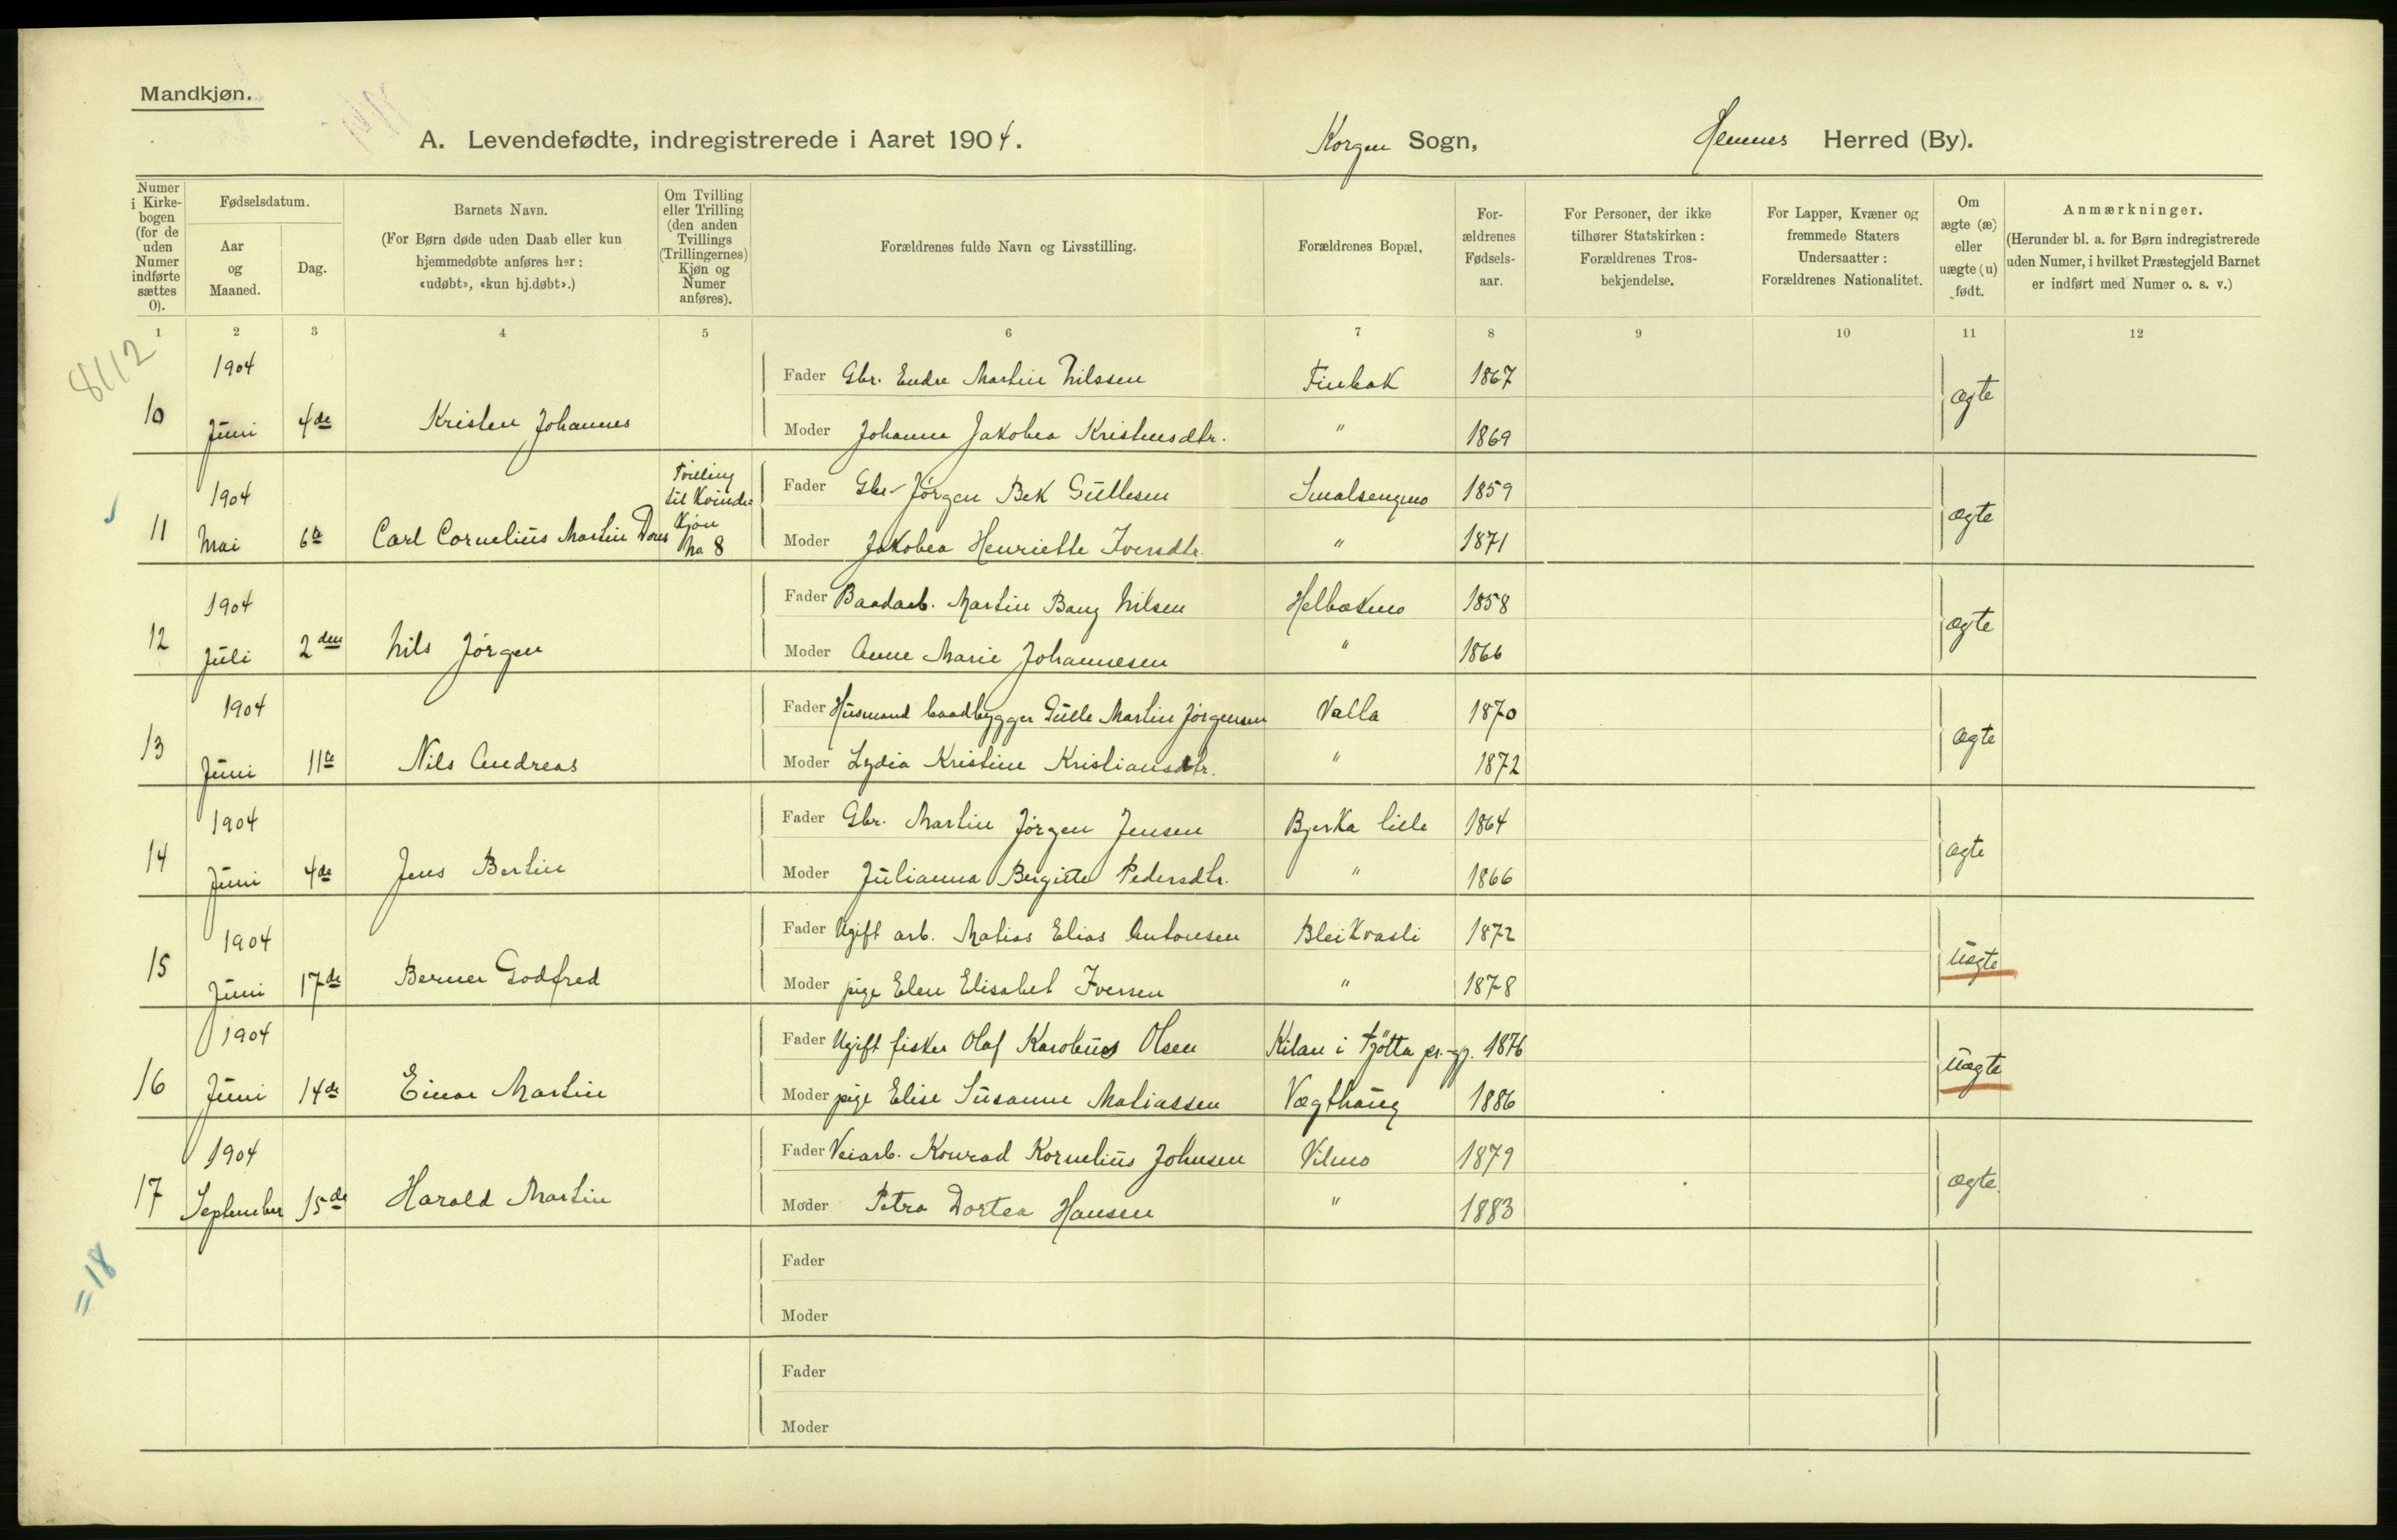 Mandkjøn.
A. Levendefødte, indregistrerede i Aaret 1904. Korgen Sogn, Hemnes Herred (By).
Numer i Kirkebogen (for de uden Numer indførte sættes 0).
Fødselsdatum.
Aar og Maaned.
Dag.
Barnets Navn.
(For Børn døde uden Daab eller kun hjemmedøbte anføres her: «udøbt», «kun hj.døbt».)
Om Tvilling eller Trilling (den anden Tvillings (Trillingernes) Kjøn og Numer anføres).
Forældrenes fulde Navn og Livsstilling.
Forældrenes Bopæl,
Forældrenes Fødselsaar.
For Personer, der ikke tilhører Statskirken: Forældrenes Trosbekjendelse.
For Lapper, Kvæner og fremmede Staters Undersaatter: Forældrenes Nationalitet.
Om ægte (æ) eller uægte (u) født.
Anmærkninger.
(Herunder bl. a. for Børn indregistrerede uden Numer, i hvilket Præstegjeld Barnet er indført med Numer o. s. v.)
1 2 3 4 5 6 7 8 9 10 11 12
8112
1904 Fader Gbr. Endre Martin Nilssen Finbak 1867
10 Juni 4de Kristen Johannes Moder Johanna Jakobea Kristensdtr. " 1869 ægte
1904 Tvilling til Kvinde- Fader Gbr. Jørgen Bek Gullesen Smalsengmo 1859
11 Mai 6te Carl Cornelius Martin Dores Kjøn No 8 Moder Jakobea Henriette Iversdtr. " 1871 ægte
1904 Fader Baadarb. Martin Bang Nilsen Helbækmo 1858
12 Juli 2den Nils Jørgen Moder Anne Marie Johannesen " 1866 ægte
1904 Fader Husmand baadbygger Gulle Martin Jørgensen Valla 1870
13 Juni 11te Nils Andreas Moder Lydia Kristine Kristiansdtr. " 1872 ægte
1904 Fader Gbr. Martin Jørgen Jensen Bjerka lille 1864
14 Juni 4de Jens Bertin Moder Julianna Bergitte Pedersdtr. " 1866 ægte
1904 Fader Ugift arb. Matias Elias Antonsen Bleikvasli 1872
15 Juni 17de Berner Godfred Moder pige Elen Elisabet Iversen " 1878 uægte
1904 Fader Ugift fisker Olaf Karolius Olsen Kilan i Tjøtta pr.gj. 1876
16 Juni 14de Einar Martin Moder pige Elise Susanne Matiassen Vægthaug 1886 uægte
1904 Fader Veiarb. Konrad Kornelius Johnsen Vilmo 1879
17 September 15de Harald Martin Moder Petra Dortea Hansen " 1883 ægte.
=18
Fader
Moder
Fader
Moder